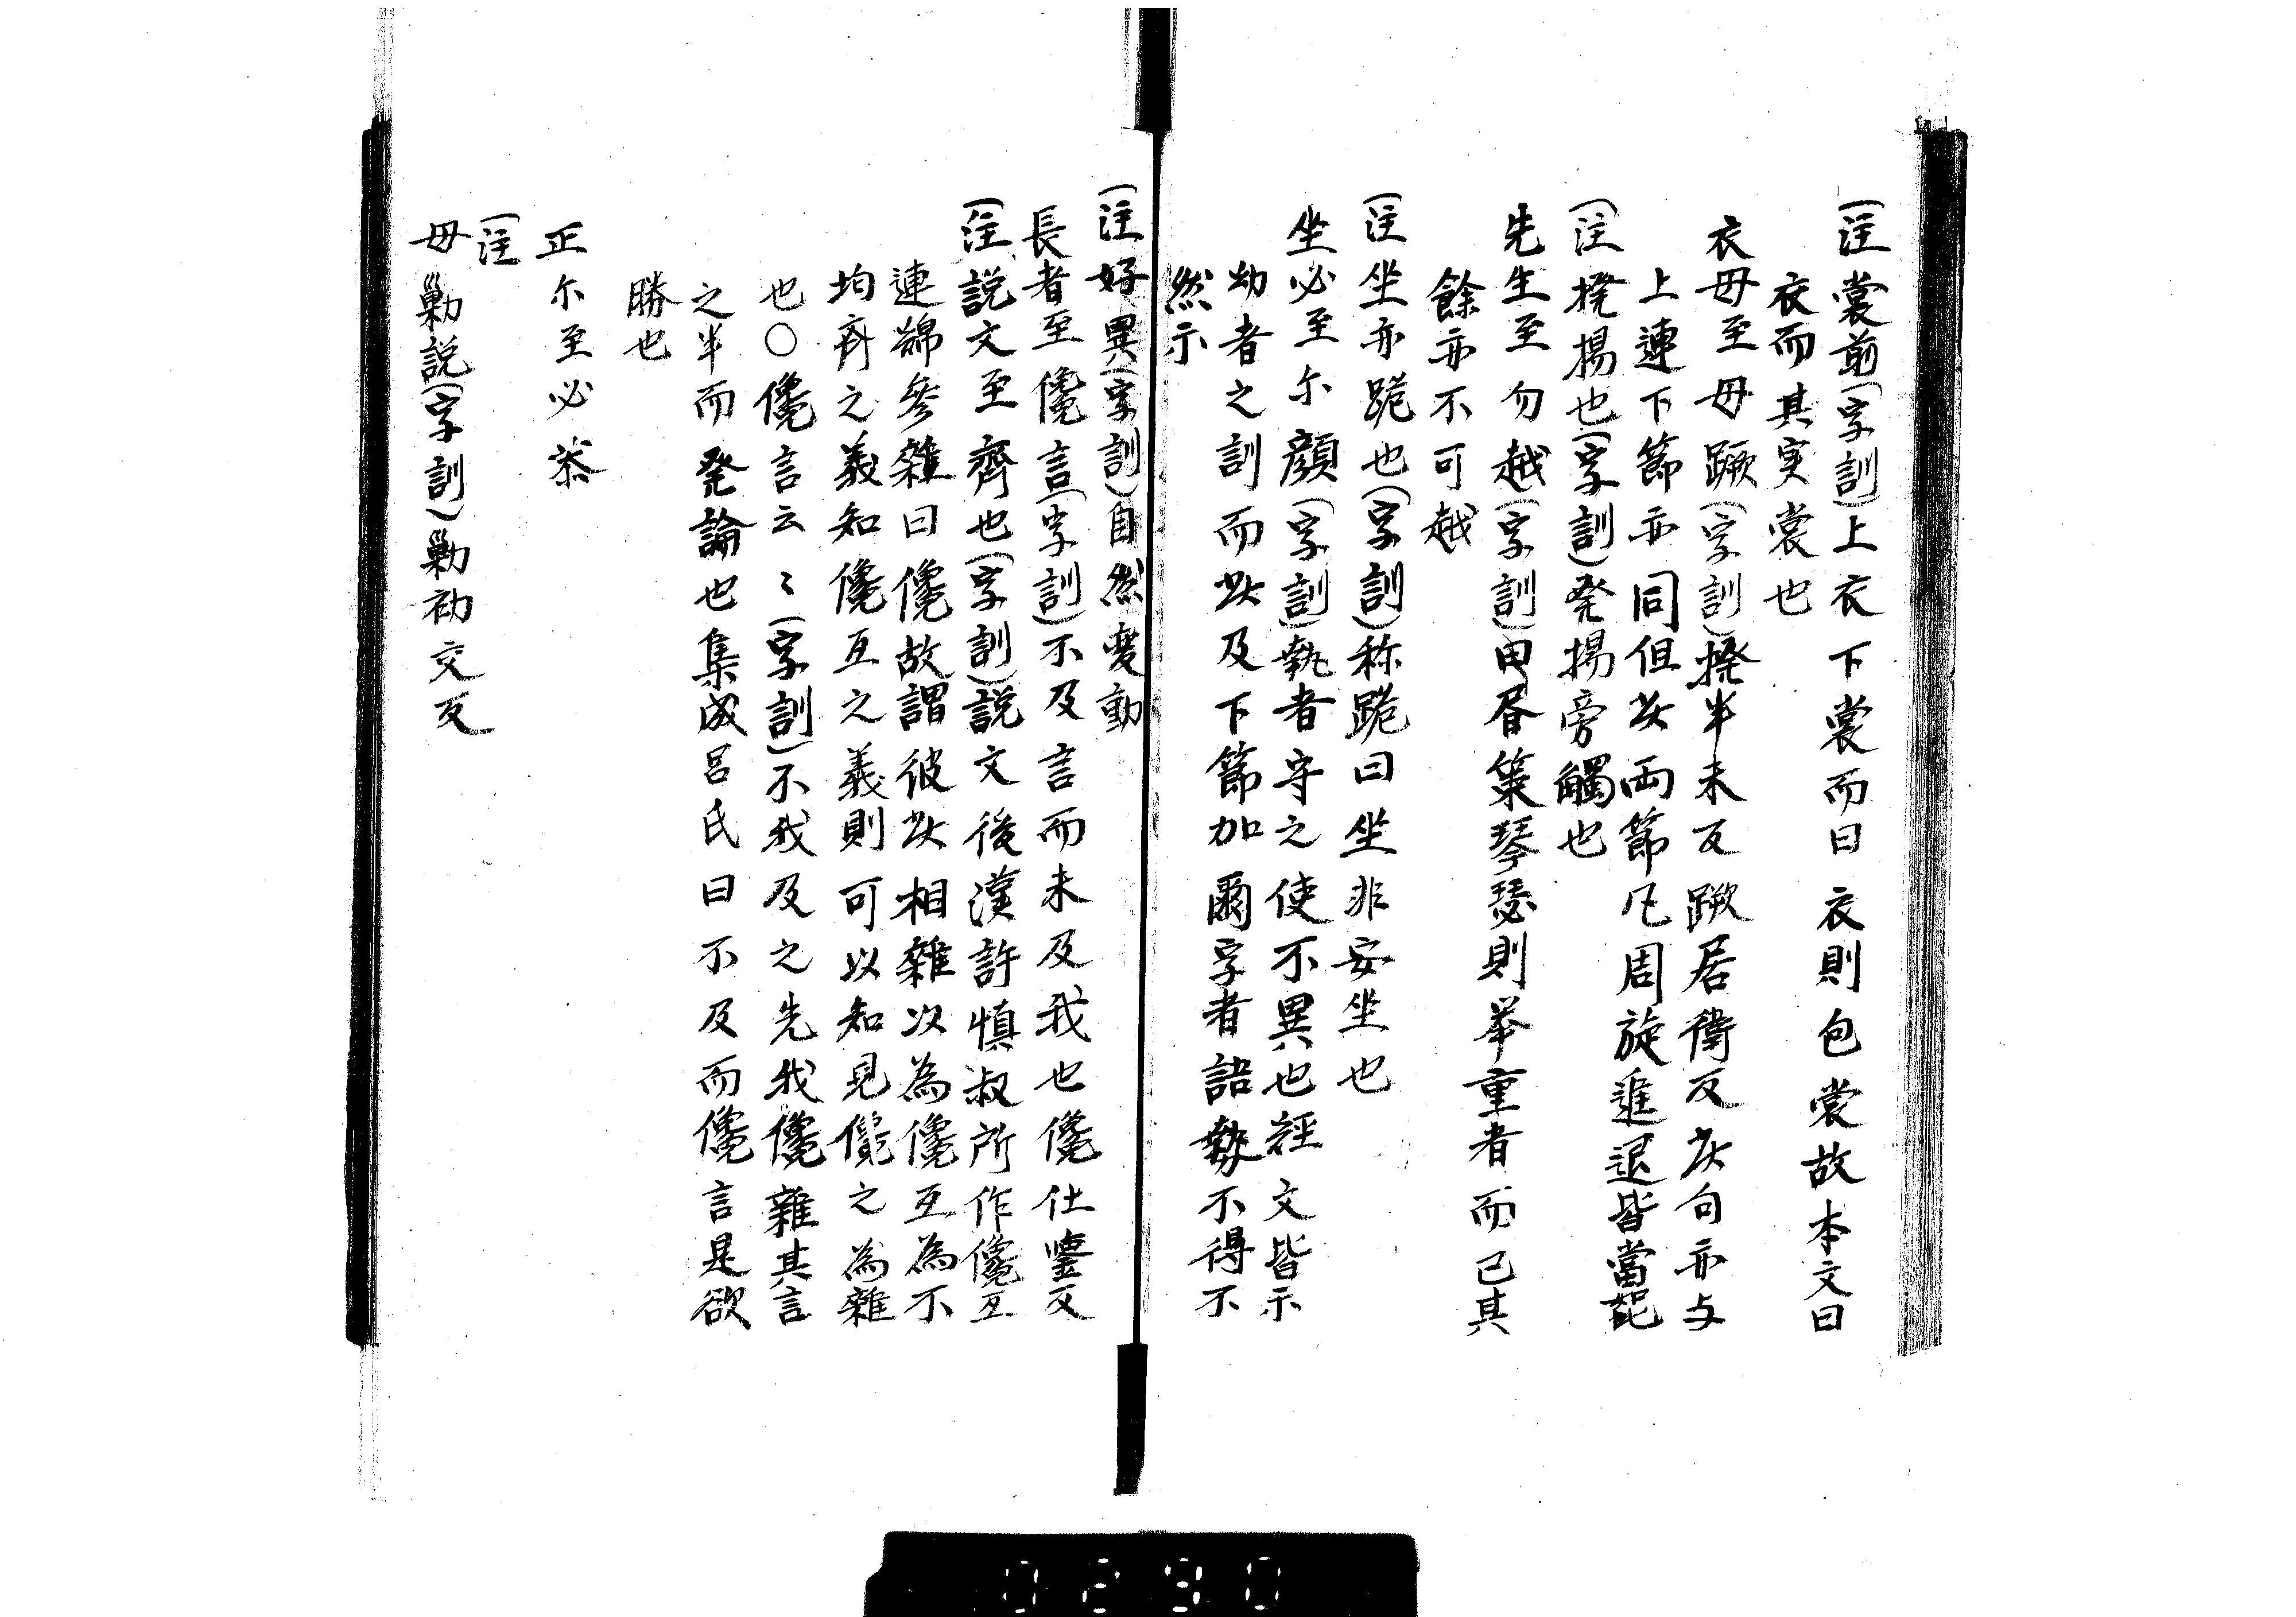 (注裳前(字訓)上衣下裳而曰衣則包裳故本文曰
衣而其実裳也
衣毋至毋蹶(字訓)撥半末反蹶居衛反此句亦与
上連下節亦同但此両節凡周旋進退皆當記
(注撥揚也(字訓)発揚旁觸也
先生至勿越(字訓)由眉策琴瑟則举重者而已其
餘亦不可越
(注坐亦跪也(字訓)称跪曰坐非安坐也
坐必至尓顔(字訓)執者守之使不異也経文皆示
幼者之訓而此及下節加爾字者語勢不得不
然示
(注好異(字訓)自然変動
長者至儳言(字訓)不及言而未及我也儳仕鑒反
(注説文至齊也(字訓)説文後漢許慎叔所作儳互
連綿参雜曰儳故謂彼此相雜以為儳互為不
均斉之義知儳互之義則可以知見儳之為雜
也〇儳言云〻(字訓)不我及之先我儳雜其言
之半而発論也集成呂氏曰不及而儳言是欲
勝也
正尓至必恭
(注
毋勦説(字訓)勦初交反
0290